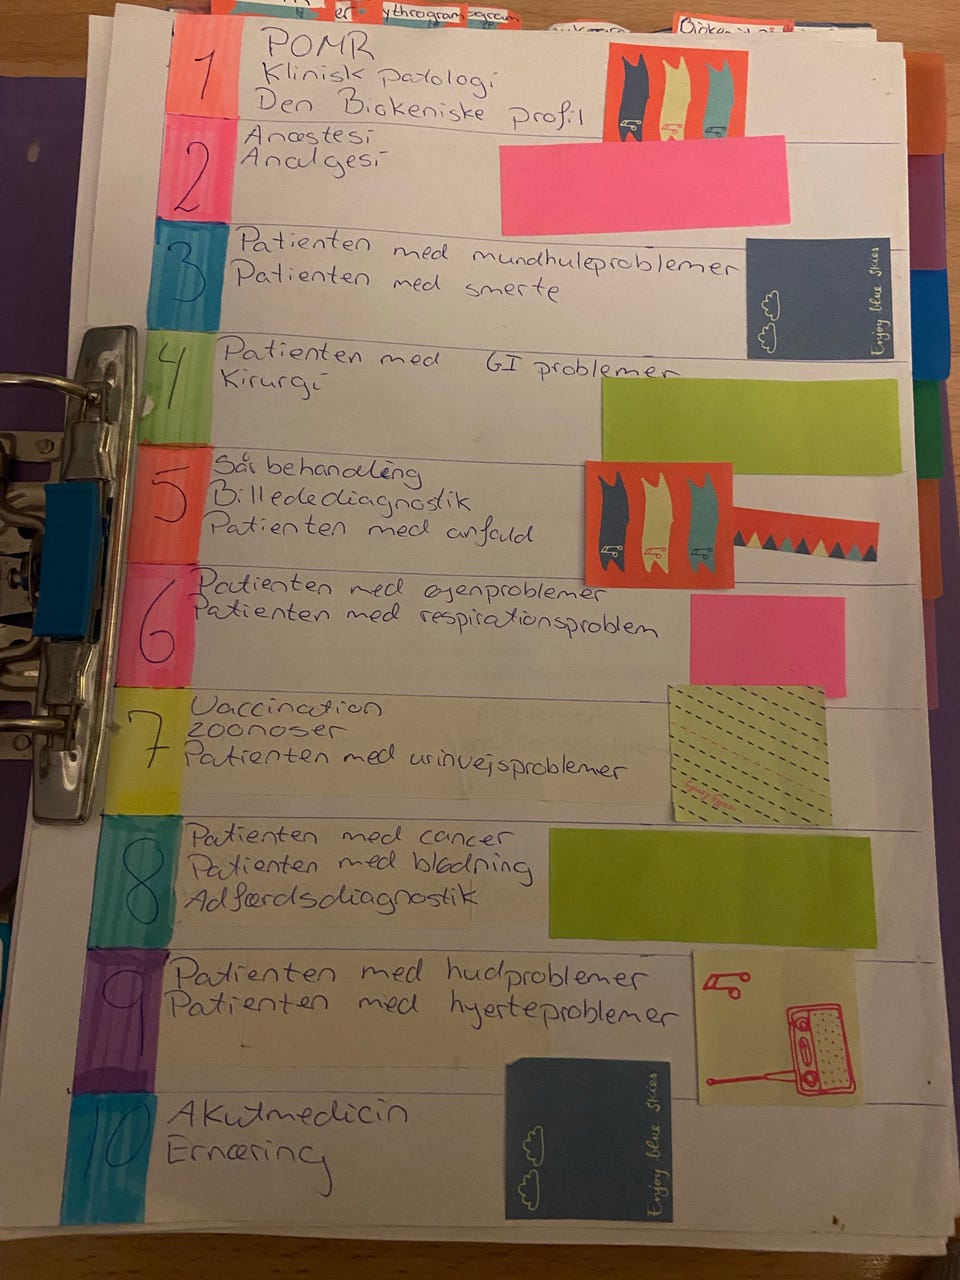 ythrogram
1
POMR
Klinisk patologi
Den Biokeniske profil
2
Anæstesi
Analgesi
3
Patienten med mundhuleproblemer
Patienten med smerte
Enjoy blue skies
4
Patienten med GI problemer
Kirurgi
5
Sårbehandling
Billedediagnostik
Patienten med anfald
6
Patienten med øjenproblemer
Patienten med respirationsproblem
7
Vaccination
zoonoser
Patienten med urinvejsproblemer
8
Patienten med cancer
Patienten med blødning
Adfærdsdiagnostik
9
Patienten med hudproblemer
Patienten med hjerteproblemer
10
Akutmedicin
Ernæring
Enjoy blue skies